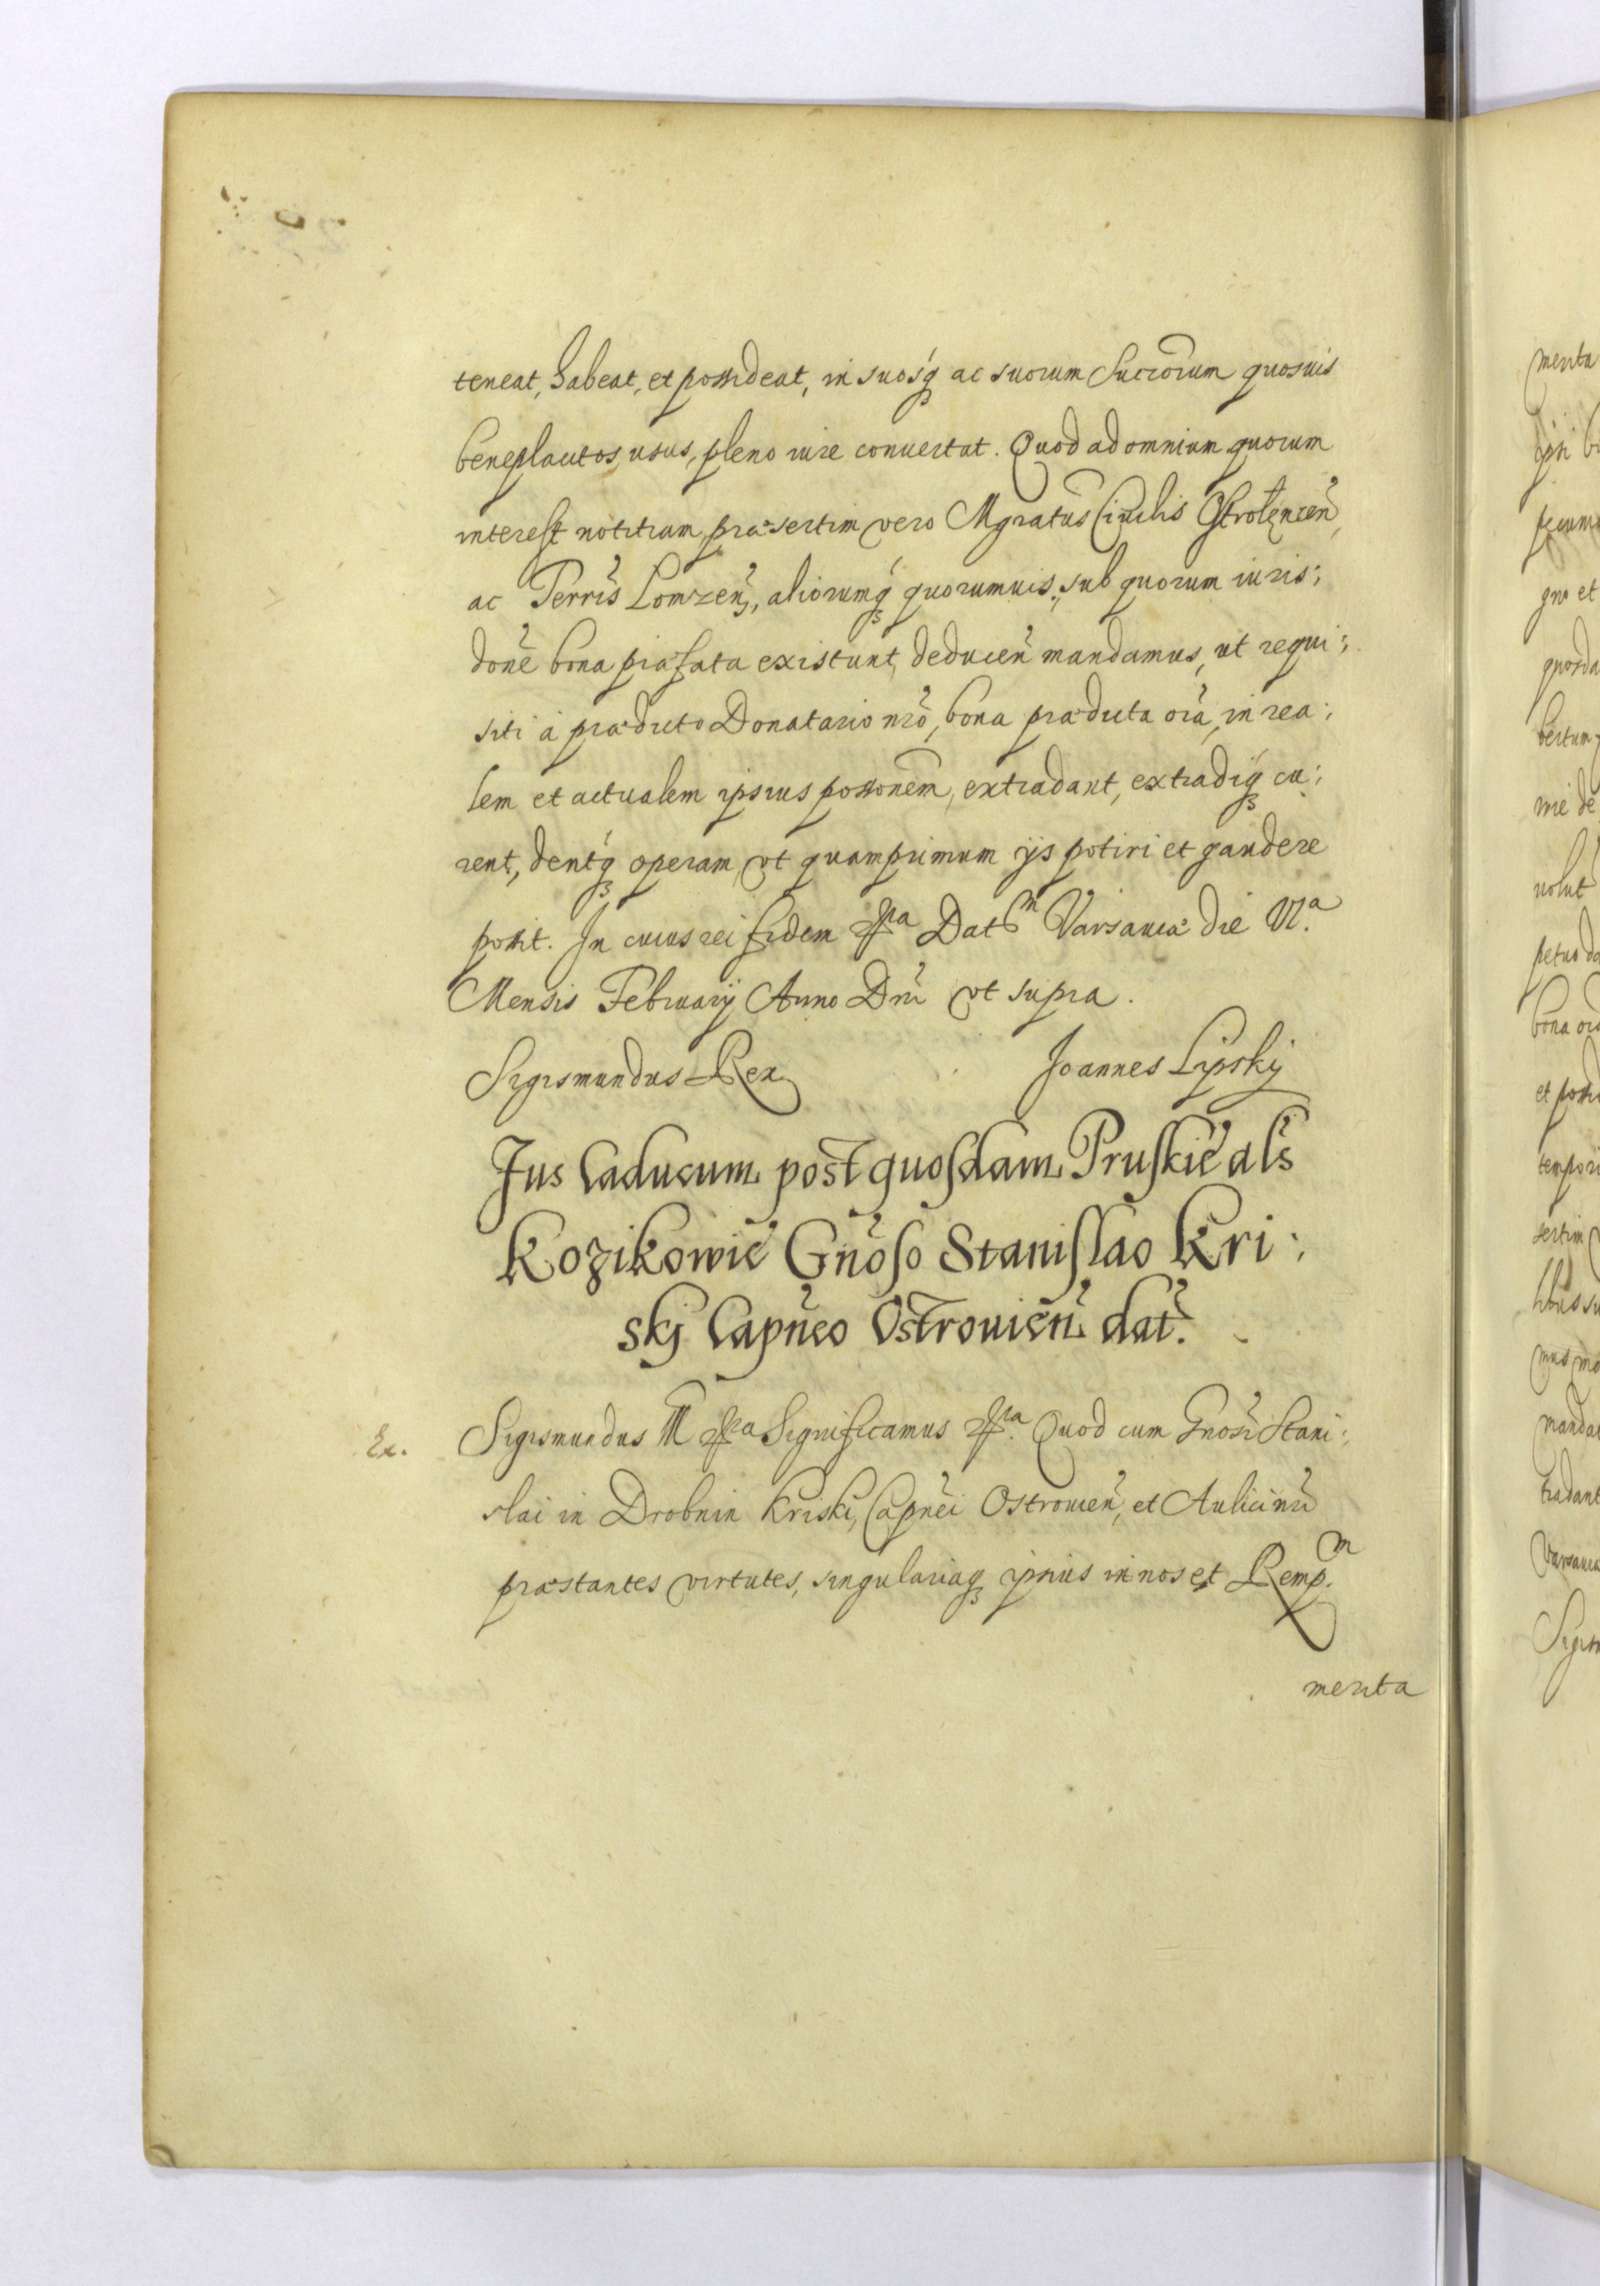 teneat, habeat, et possideat, in suosq́ꝫ ac suorum Succrōrum quosuis
beneplacitos usus, pleno iure conuertat. Quod ad omnium quorum
interest notitiam, præsertim vero Mgratūs Ciuilis Ostrolęncen̄,
ac Terrīs Lomzen̄, aliorumq́ꝫ quorumuis, sub quorum iuris:
donē bona præfata existunt, deducen̄ mandamus, ut requi:
siti à prædicto Donatario nrō, bona prædicta oīa, in rea:
lem et actualem ipsius possonēm, extradant, extradiq́ꝫ cu:
rent, dentq́ꝫ operam, vt quamprimum ijs potiri et gaudere
possit. In cuius rei fidem &ra Datm Varsauiæ die VI.a
Mensis February Anno Dnī vt supra.
Sigismundus Rex
Joannes Lipskij
Jus Caducum post quosdam Pruskie als̄
Kozikowie Gnōso Stanislao Kri:
skj Capn̄eo Ostrouien̄ dat̄.
Ex. Sigismundus III &ra Significamus &ra. Quod cum Gnōsi Stani:
slai in Drobnin Kriski, Capn̄ei Ostrouien̄, et Aulici nrī
præstantes virtutes, singulariaqꝫ ipsius in nos et Remp.m
merita
merita
ipsi
gno et
quosda
nrē de
uolut
petuo do
bona oīa
et possid
tempori
sertim
mus mo
mandat
tradant
Varsauia
Sigism